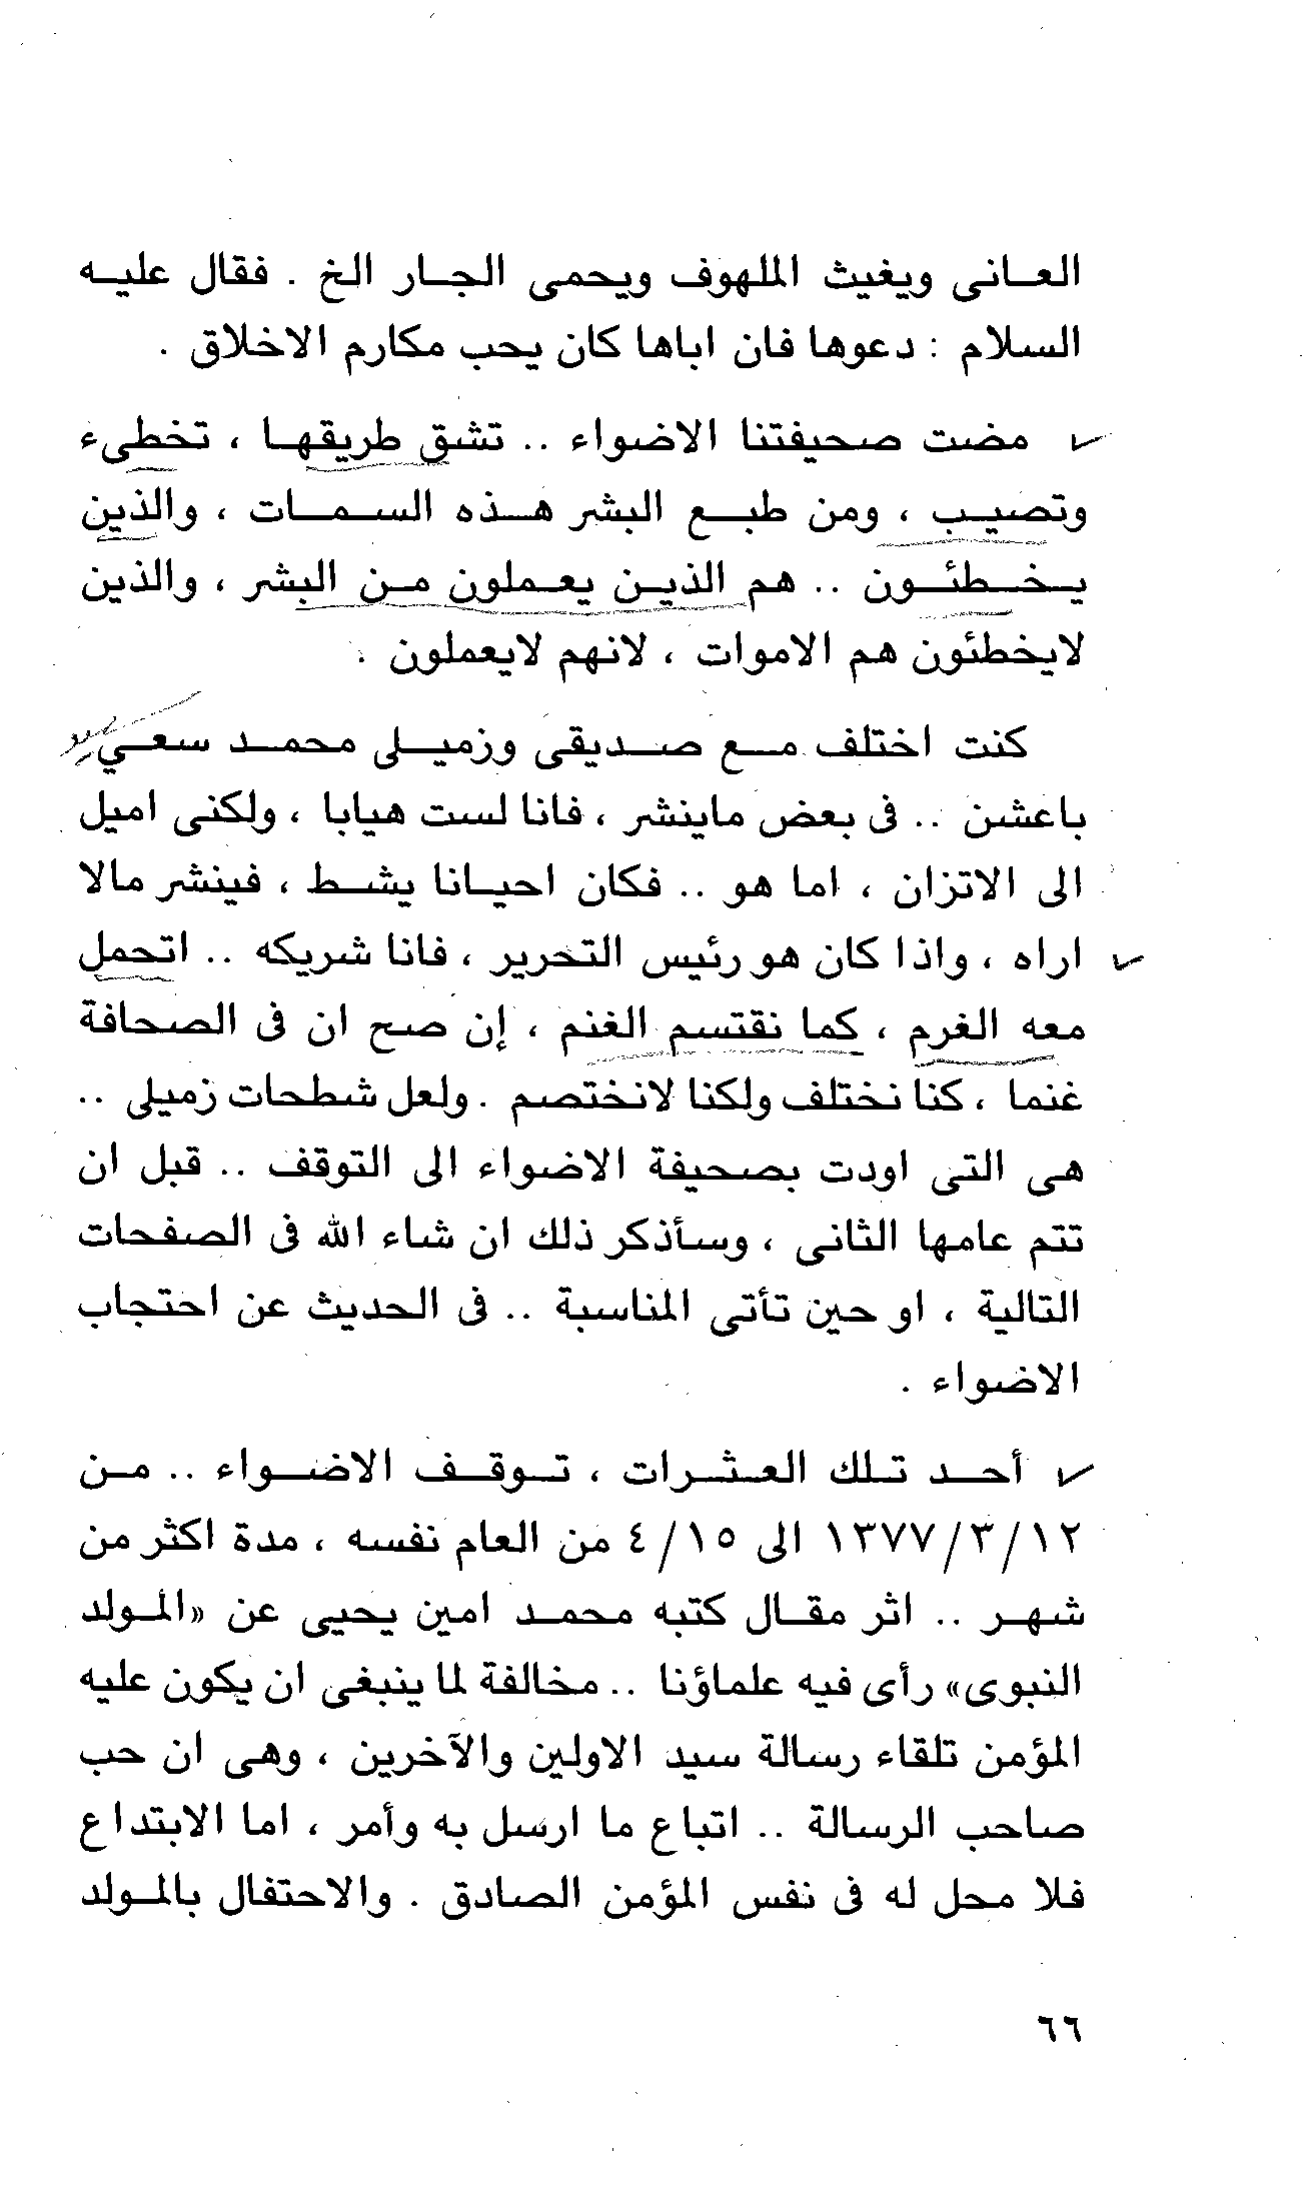 العانى ويغيث الملهوف ويحمى الجار الخ . فقال عليه
السلام : دعوها فان اباها كان يحب مكارم الاخلاق .
مضت صحيفتنا الاضواء .. تشق طريقها ، تخطىء
وتصيب ، ومن طبع البشر هذه السمات ، والذين
يخطئون .. هم الذين يعملون من البشر ، والذين
لايخطئون هم الاموات ، لانهم لايعملون .
كنت اختلف مع صديقى وزميلى محمد سعيد
باعشن .. فى بعض ماينشر ، فانا لست هيابا ، ولكنى اميل
الى الاتزان ، اما هو .. فكان احيانا يشط ، فينشر مالا
اراه ، واذا كان هو رئيس التحرير ، فانا شريكه .. اتحمل
معه الغرم ، كما نقتسم الغنم ، إن صح ان فى الصحافة
غنما ، كنا نختلف ولكنا لانختصم . ولعل شطحات زميلى ..
هى التى اودت بصحيفة الاضواء الى التوقف .. قبل ان
تتم عامها الثانى ، وسأذكر ذلك ان شاء الله فى الصفحات
التالية ، او حين تأتى المناسبة .. فى الحديث عن احتجاب
الاضواء .
أحد تلك العثرات ، توقف الاضواء .. من
١٣٧٧/٣/١٢ الى ٤/١٥ من العام نفسه ، مدة اكثر من
شهر .. اثر مقال كتبه محمد امين يحيى عن «المولد
النبوى» رأى فيه علماؤنا .. مخالفة لما ينبغى ان يكون عليه
المؤمن تلقاء رسالة سيد الاولين والآخرين ، وهى ان حب
صاحب الرسالة .. اتباع ما ارسل به وأمر ، اما الابتداع
فلا محل له فى نفس المؤمن الصادق . والاحتفال بالمولد
٦٦